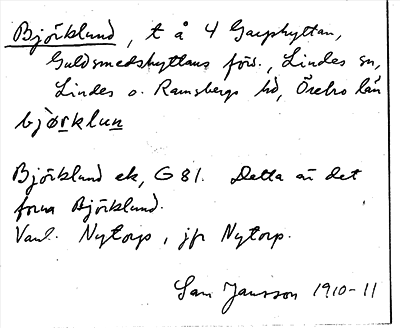 Björklund, t å 4 Garphyttan,
Guldsmedshyttans förs., Lindes sn,
Lindes o. Ramsbergs hd, Örebro län
bjørklun
Björklund ek, G 81. Detta är det
forna Björklund.
Vanl. Nytorp, jfr Nytorp.
Sam Jansson 1910-11